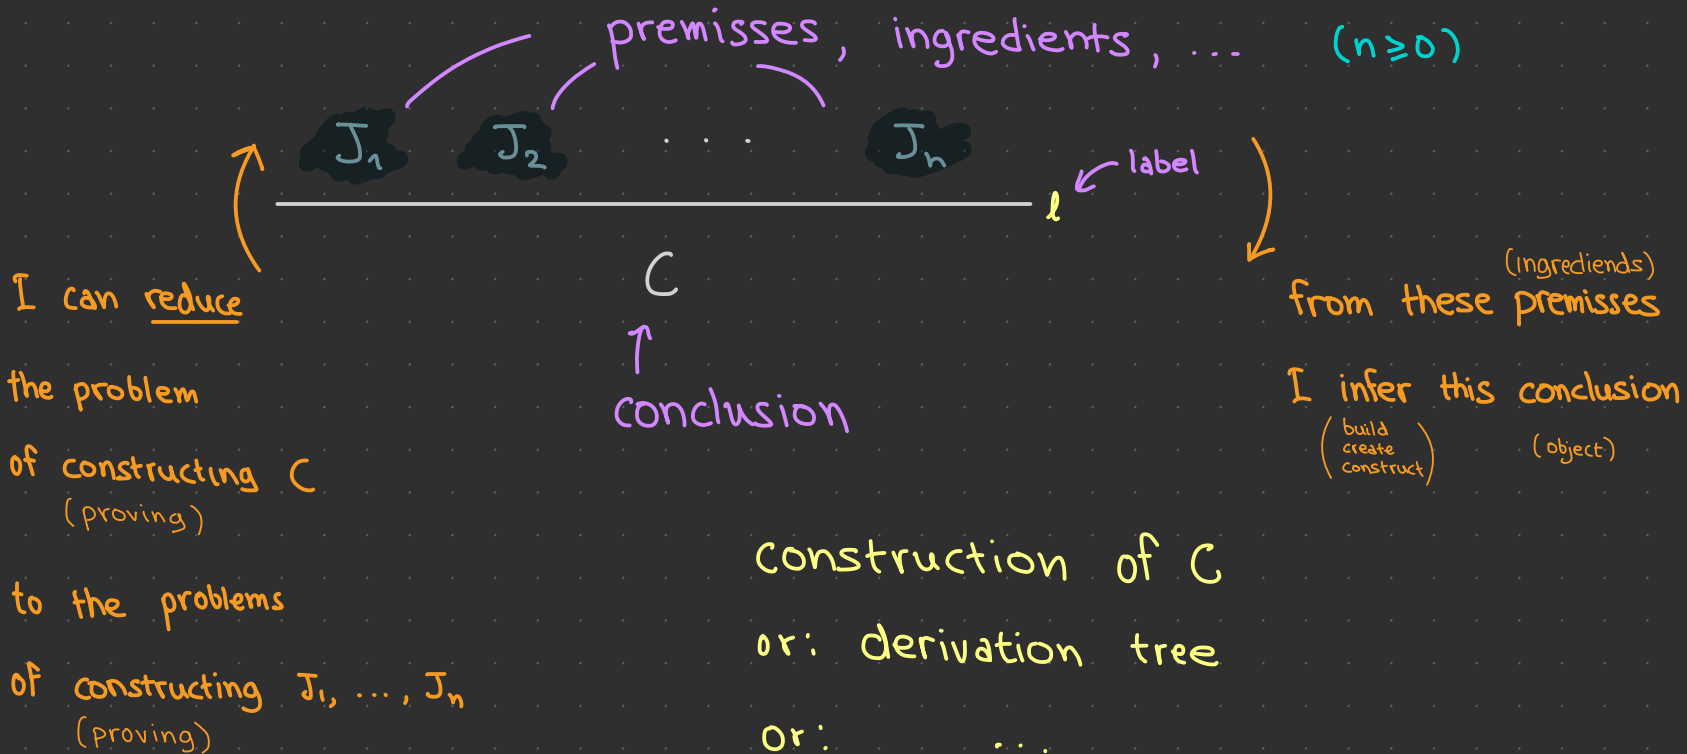 premisses, ingredients, ... (n ≥ 0)
J₁ J₂ ... Jₙ
label
l
C
conclusion
I can reduce
the problem
of constructing C
(proving)
to the problems
of constructing J₁, ..., Jₙ
(proving)
(ingrediends)
from these premisses
I infer this conclusion
(build
create
construct)
(object)
construction of C
or: derivation tree
or: ...